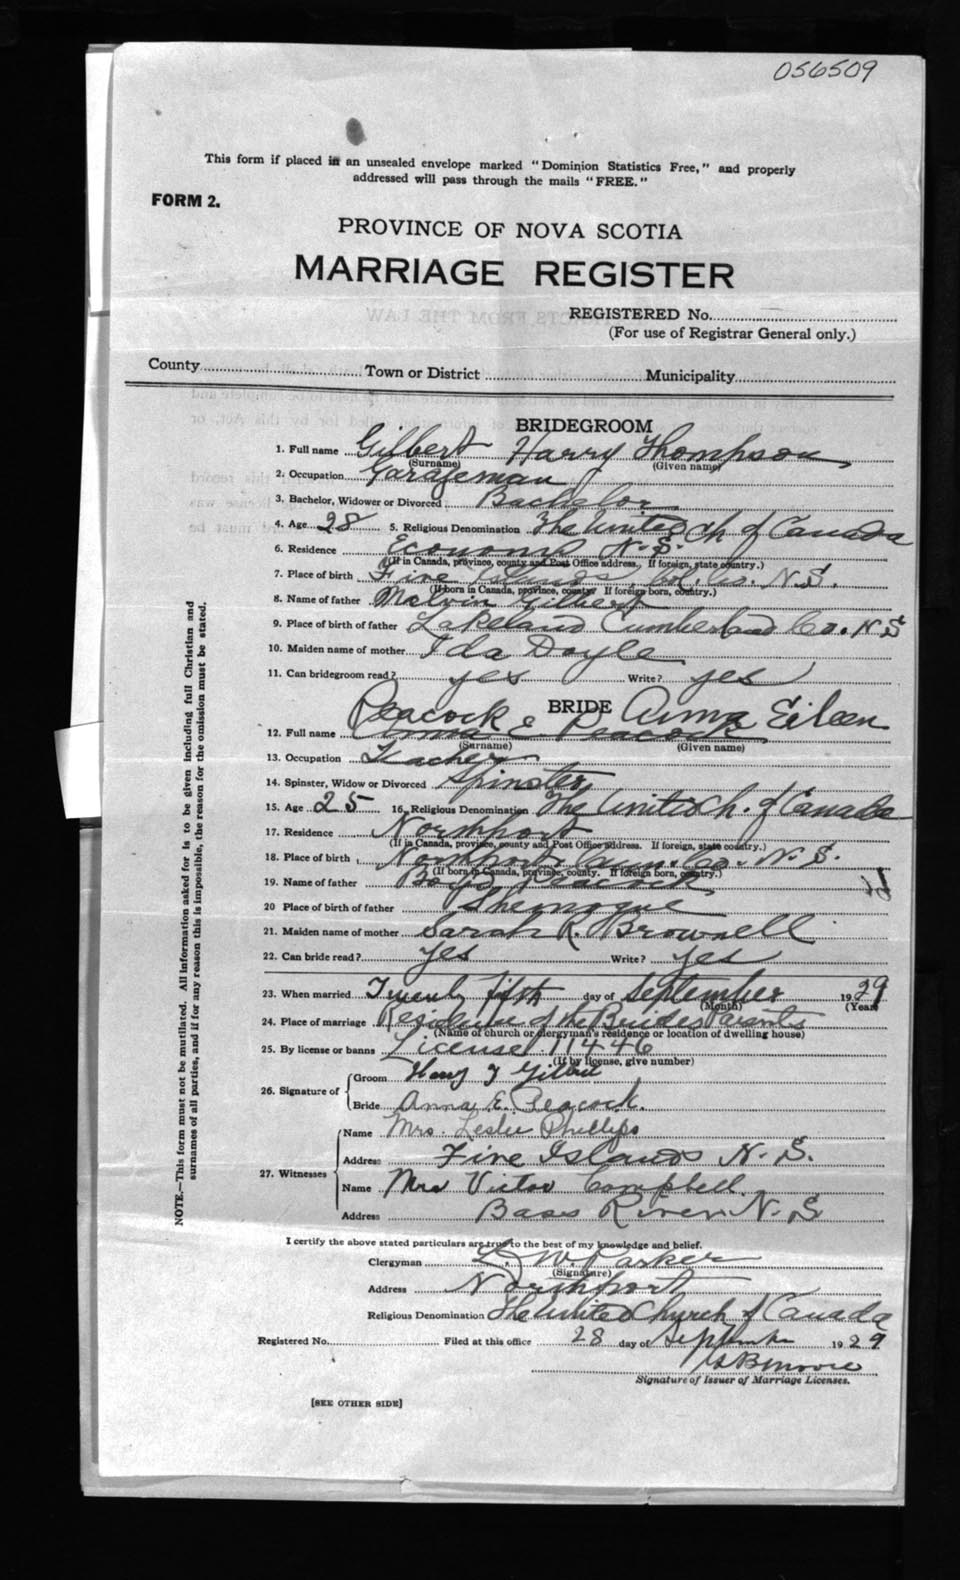 056509
This form if placed in an unsealed envelope marked "Dominion Statistics Free," and properly
addressed will pass through the mails "FREE."
FORM 2.
PROVINCE OF NOVA SCOTIA
MARRIAGE REGISTER
REGISTERED No.
(For use of Registrar General only.)
County Town or District Municipality
BRIDEGROOM
1. Full name Gilbert Harry Thompson
(Surname) (Given name)
2. Occupation Garageman
3. Bachelor, Widower or Divorced Bachelor
4. Age 28 5. Religious Denomination The United Ch of Canada
6. Residence Economy N.S.
(If in Canada, province, county and Post Office address. If foreign, state country.)
7. Place of birth Five Islands, Col. Co. N.S.
(If born in Canada, province, county If foreign born, country.)
8. Name of father Melvin Gilbert
9. Place of birth of father Lakeland Cumberland Co. N.S
10. Maiden name of mother Ida Doyle
11. Can bridegroom read? yes Write? yes
BRIDE
Peacock Anna Eileen
12. Full name Anna E. Peacock
(Surname) (Given name)
13. Occupation Teacher
14. Spinster, Widow or Divorced Spinster
15. Age 25 16. Religious Denomination The United Ch. of Canada
17. Residence Northport
(If in Canada, province, county and Post Office address. If foreign, state country.)
18. Place of birth Northport Cum. Co. N.S.
(If born in Canada, province, county. If foreign born, country.)
19. Name of father Boyd Peacock
20 Place of birth of father Shemogue
21. Maiden name of mother Sarah R. Brownell
22. Can bride read? yes Write? yes
23. When married Twenty fifth day of September 1929
(Month) (Year)
24. Place of marriage Residence of the Brides Parents
(Name of church or clergyman's residence or location of dwelling house)
25. By license or banns License. 11446
(If by license, give number)
26. Signature of
Groom Harry T Gilbert
Bride Anna E. Peacock.
27. Witnesses
Name Mrs. Leslie Phillips
Address Five Islands N.S.
Name Mrs Victor Campbell
Address Bass River N.S
I certify the above stated particulars are true to the best of my knowledge and belief.
Clergyman L. W. Parker
(Signature)
Address Northport
Religious Denomination The United Church of Canada
Registered No. Filed at this office 28 day of September 1929
Signature of Issuer of Marriage Licenses.
[SEE OTHER SIDE]
NOTE.—This form must not be mutilated. All information asked for is to be given including full Christian and
surnames of all parties, and if for any reason this is impossible, the reason for the omission must be stated.